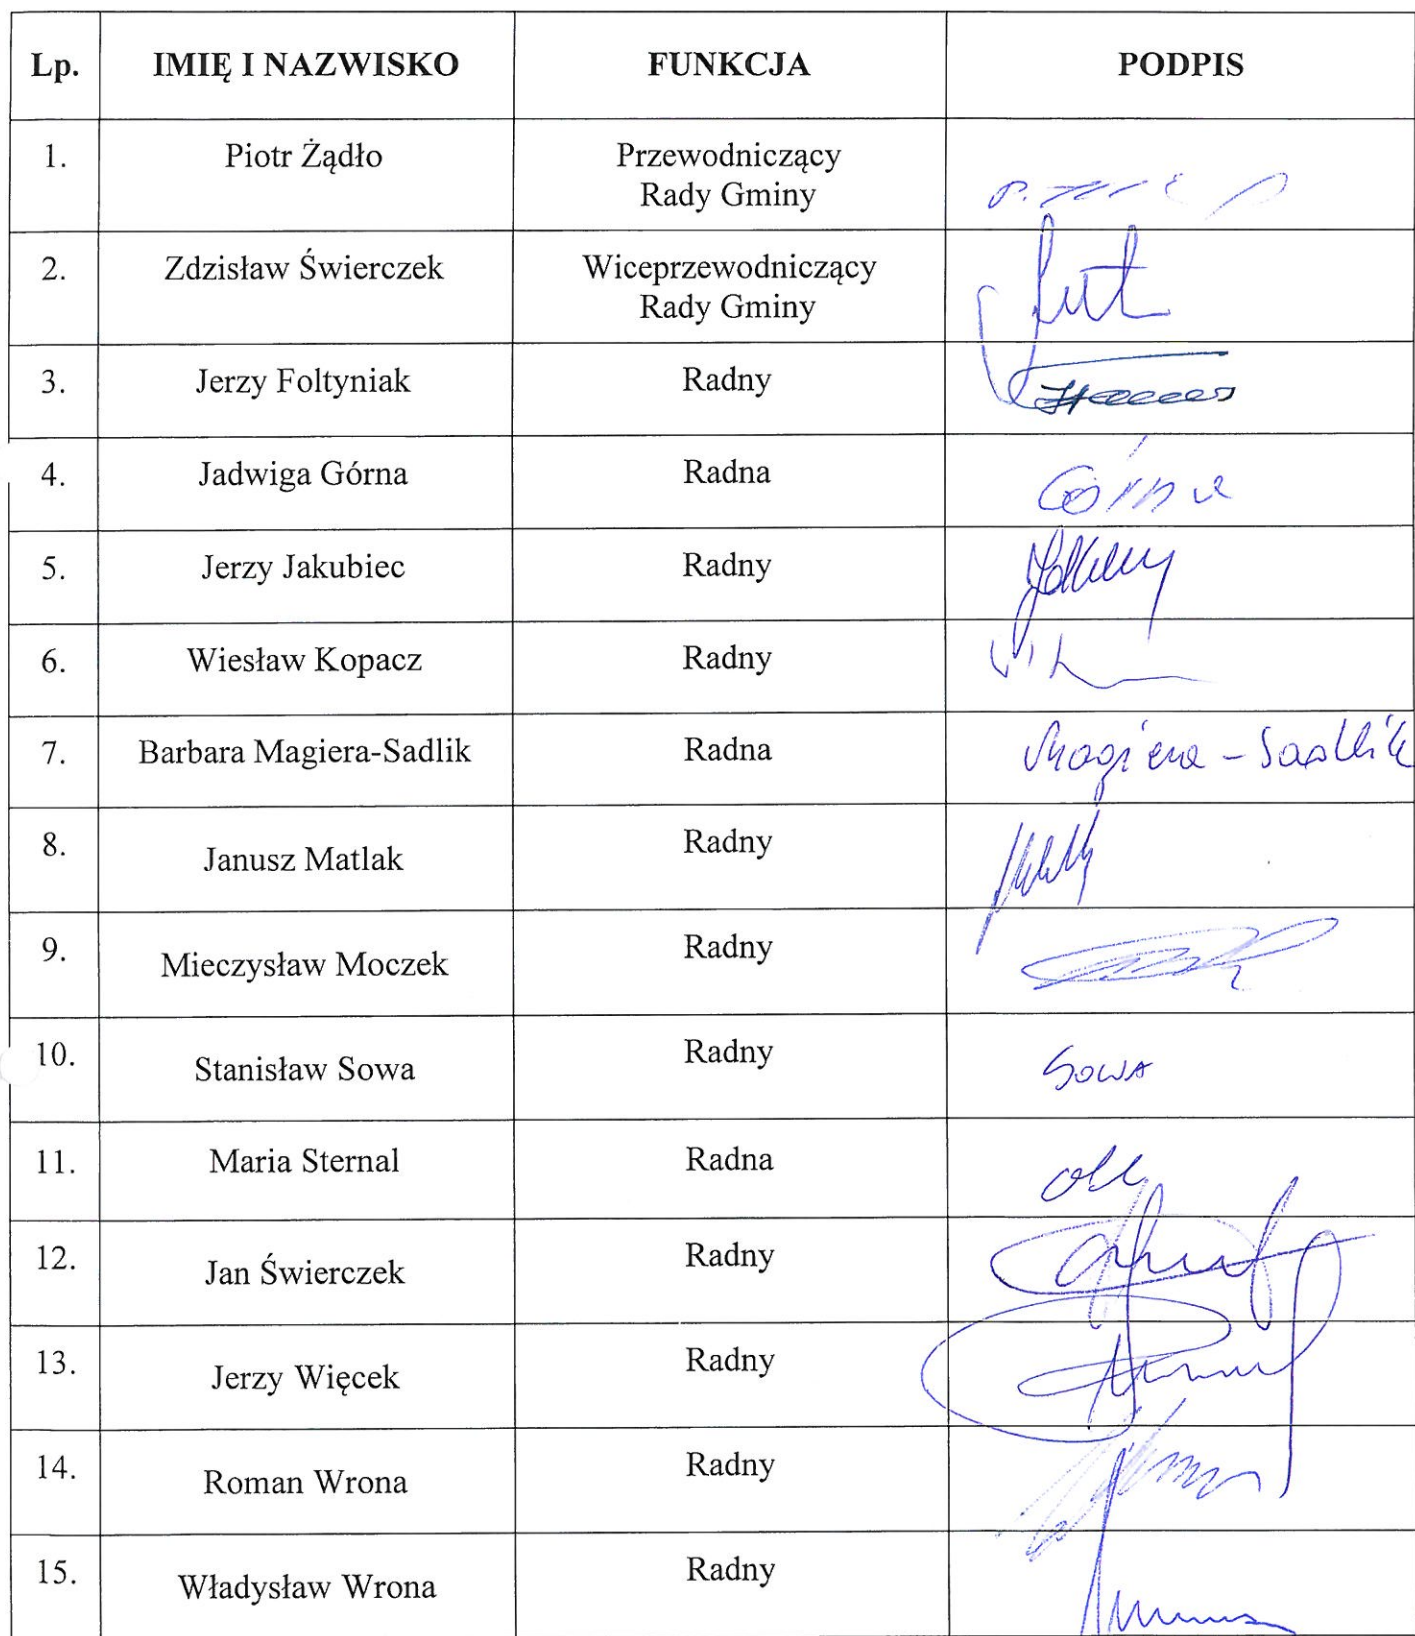 Lp. IMIĘ I NAZWISKO FUNKCJA PODPIS
1. Piotr Żądło Przewodniczący
Rady Gminy
2. Zdzisław Świerczek Wiceprzewodniczący
Rady Gminy
3. Jerzy Foltyniak Radny
4. Jadwiga Górna Radna Górna
5. Jerzy Jakubiec Radny
6. Wiesław Kopacz Radny
7. Barbara Magiera-Sadlik Radna Magiera-Sadlik
8. Janusz Matlak Radny
9. Mieczysław Moczek Radny
10. Stanisław Sowa Radny SOWA
11. Maria Sternal Radna
12. Jan Świerczek Radny
13. Jerzy Więcek Radny
14. Roman Wrona Radny
15. Władysław Wrona Radny